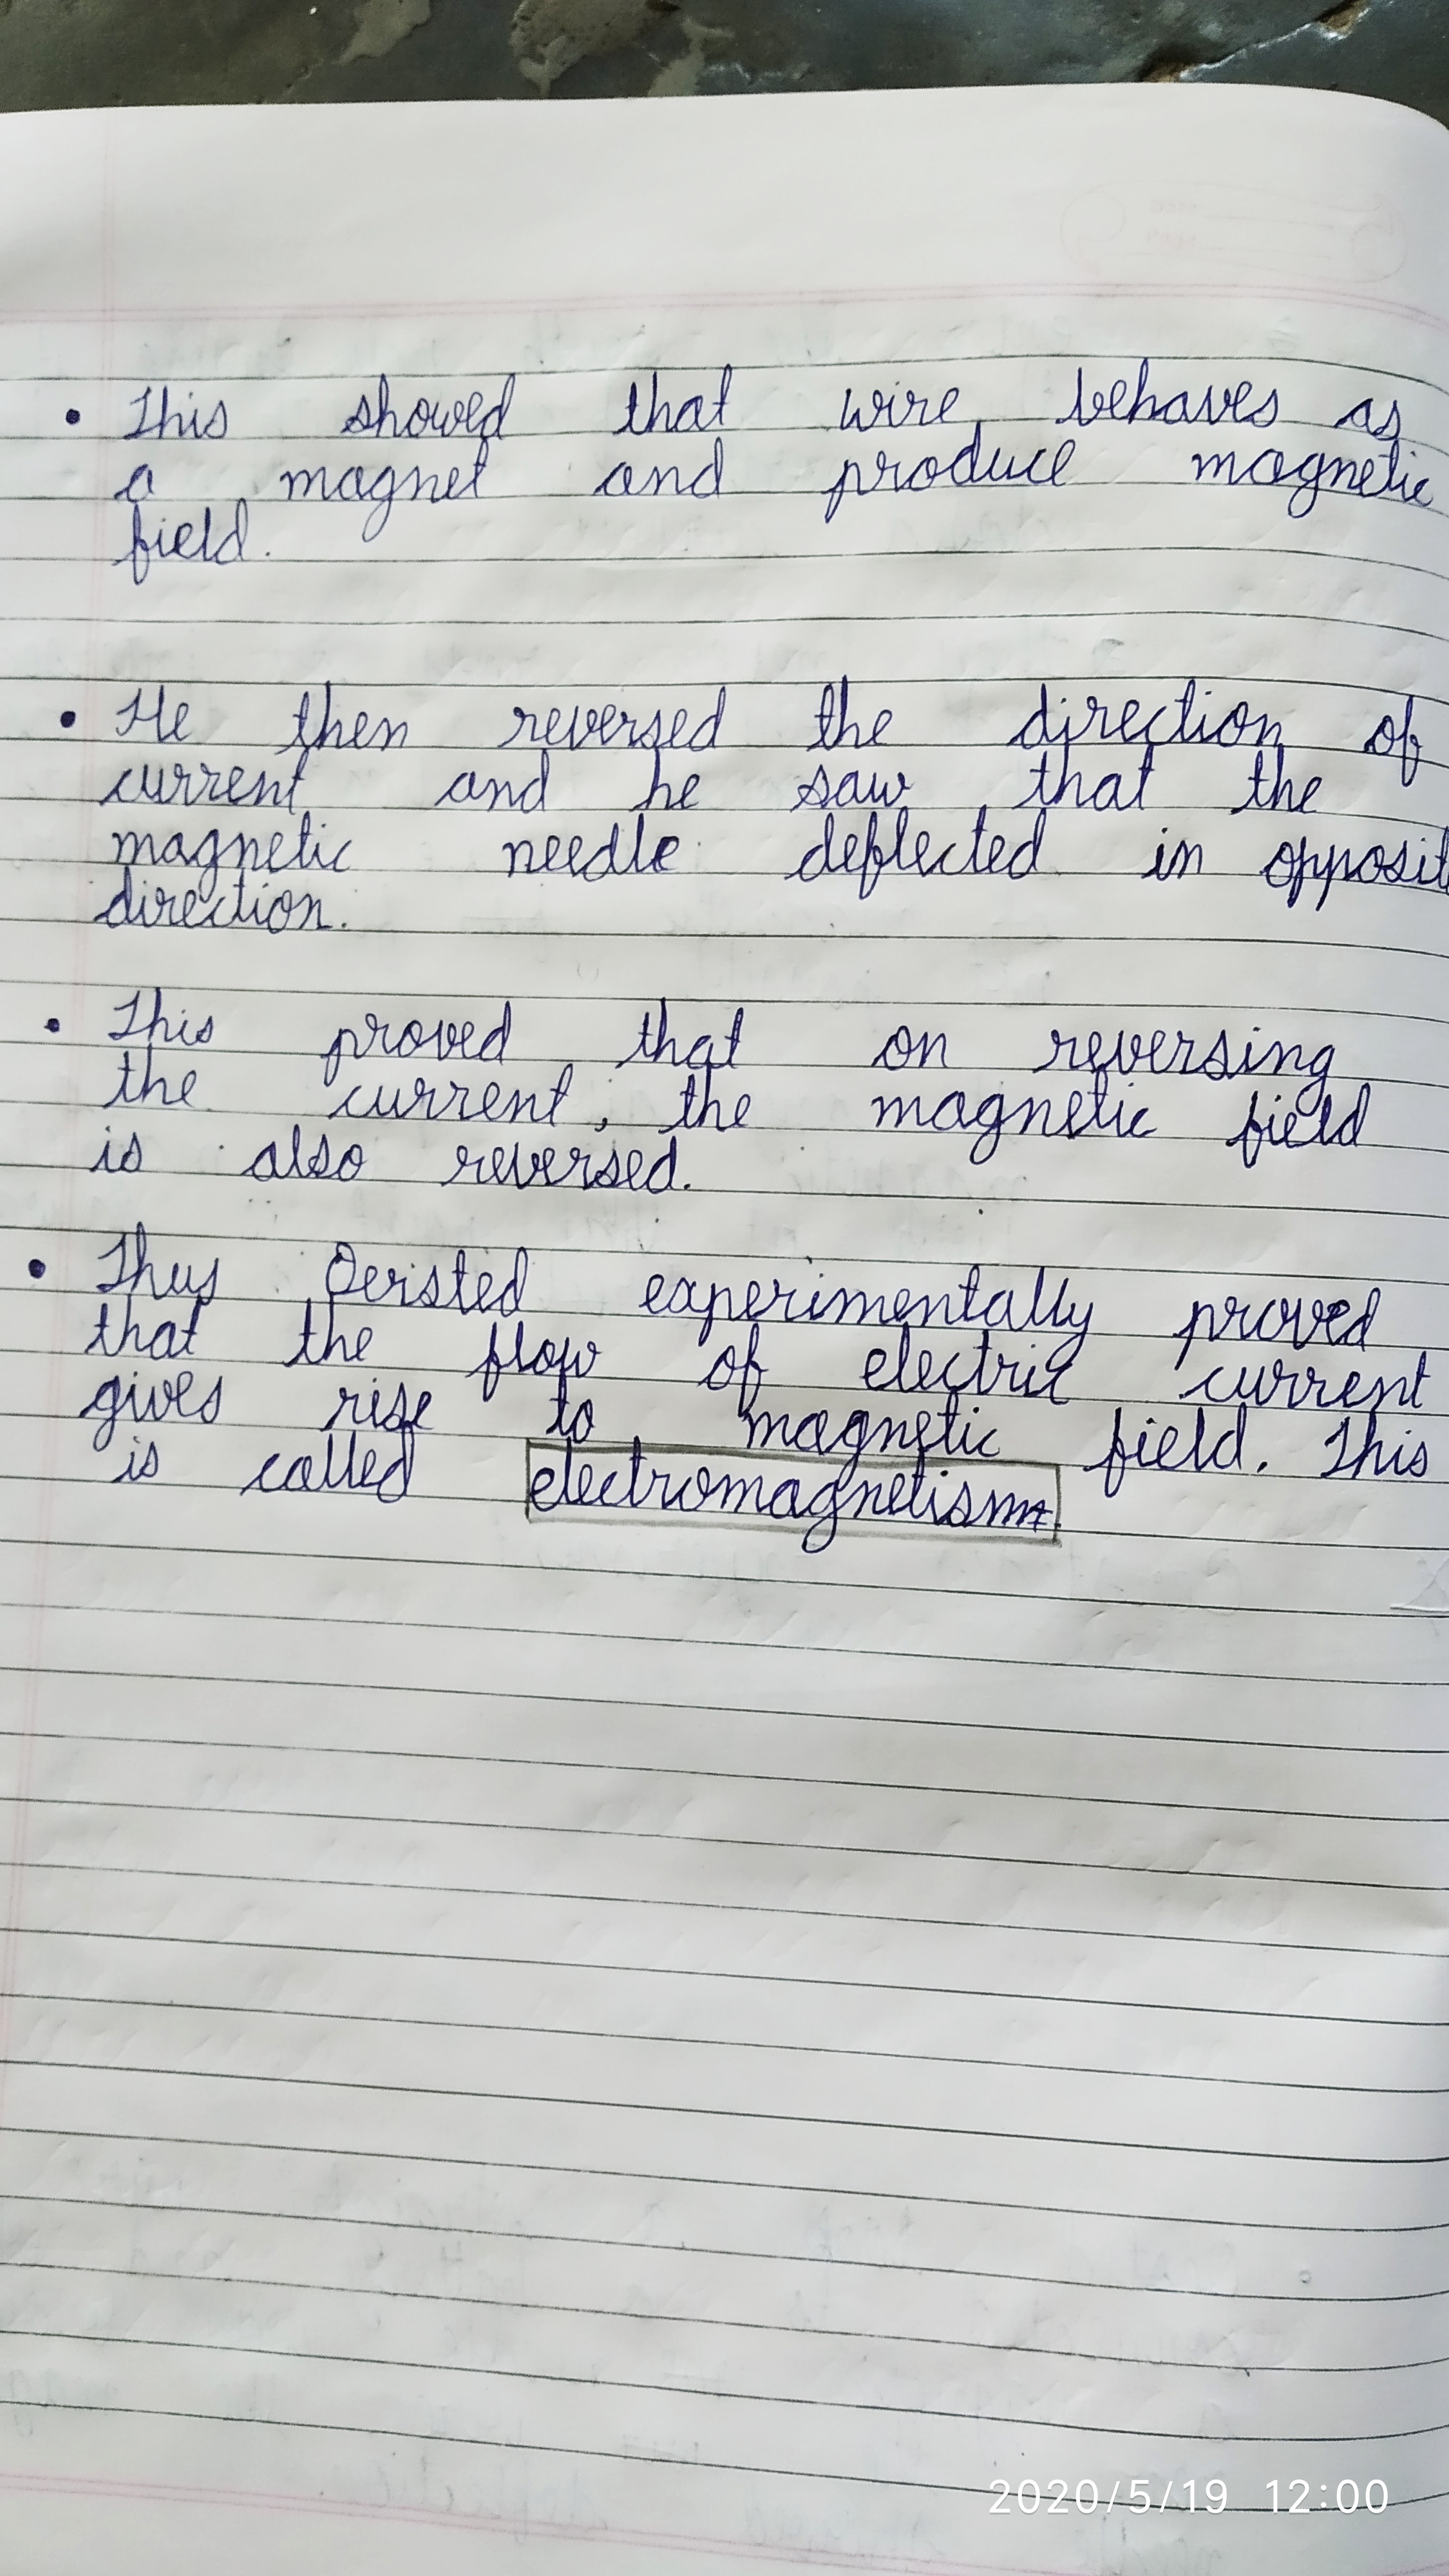 • This showed that wire behaves as
a magnet and produce magnetic
field.
• He then reversed the direction of
current and he saw that the
magnetic needle deflected in opposit
direction.
• This proved that on reversing
the current, the magnetic field
is also reversed.
• Thus Oersted experimentally proved
that the flow of electric current
gives rise to magnetic field. This
is called electromagnetism.
2020/5/19 12:00